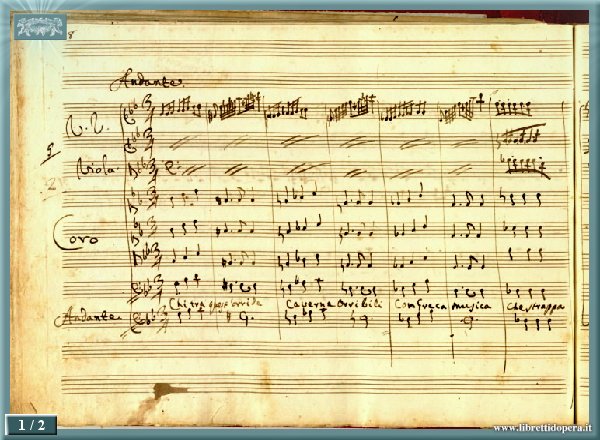 8
Andante
V. V.
Viola
Coro
Chi tra ques' orrida Caverna Orribili Con greca musica Che strappa
Andante
1 / 2
www.librettidopera.it